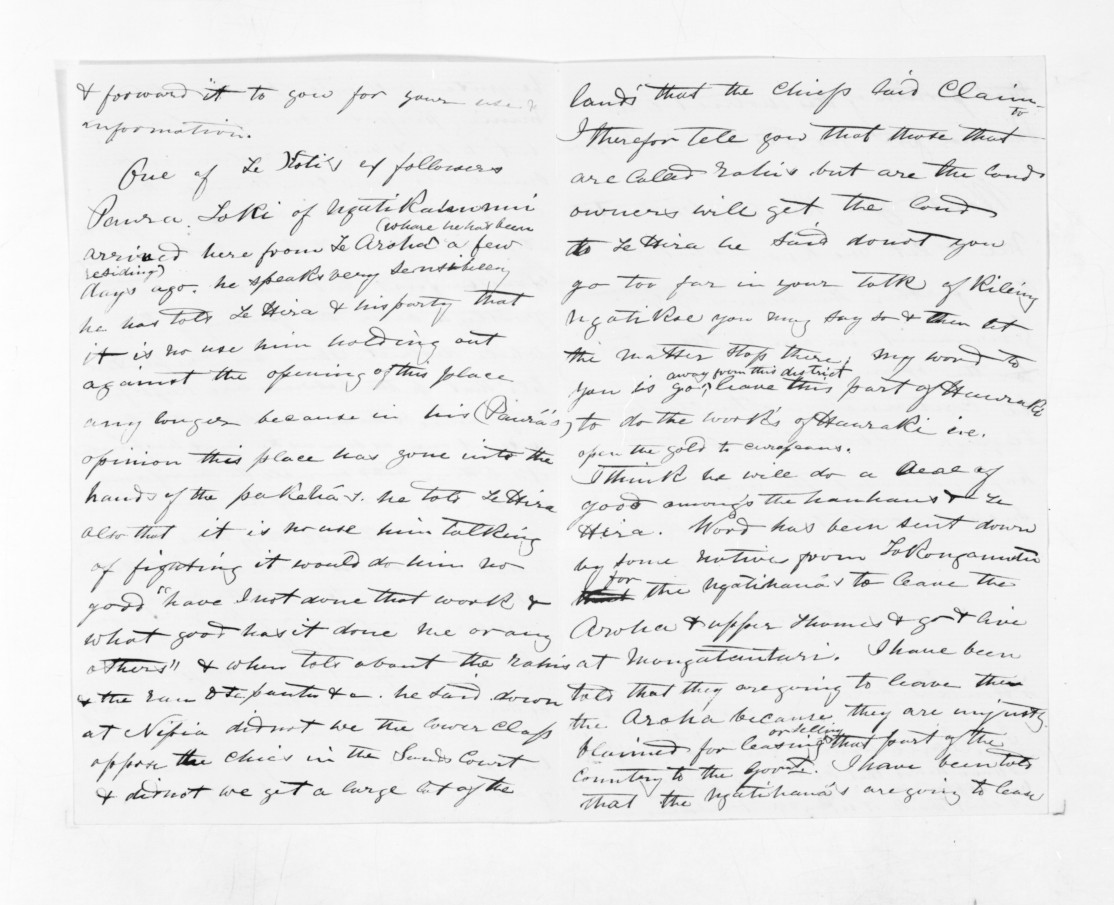 & forward it to you for your use &
information.
One of Te Kotis ex followers
Paura Toki of Ngatikahunui
(whare he has been
arrived here from Te Aroha a few
residing)
days ago. he speaks very sensibley
he has told Te Hira & his party that
it is no use him holding out
against the opening of this place
any longer because in his (Paura's)
opinion this place has gone into the
hands of the pakeha's. he told Te Hira
also that it is no use him talking
of fighting it would do him no
good "have I not done that work &
what good has it done me or any
others" & when told about the rahis
& the &c. he said down
at Nipia did not we the lower class
oppose the chies in the Lands Court
& did not we get a large lot of the
lands that the chiefs said Claim
to
I therefor tele you that those that
are caled rahis but are the land
owners will get the land
to Te Hira he said do not you
go too far in your talk of kileing
Ngatikoe you may say so & then let
the matter stop there, my word to
away from this district
you is go, leave this part of Hauraki
to do the work's of Hauraki i.e.
open the gold to europeans.
I think he will do a deal of
good amongs the hauhaus & Te
Hira. Word has been sent down
by some natives from Tokongamutu
for
the Ngatihaua's to leave the
Aroha & upper Thames & go & live
at Mongatautari. I have been
told that they are going to leave
the Aroha because they are unjustly
or selling
blaimed for leasing that part of the
Country to the Govmt. I have been told
that the Ngatihaua's are going to lease